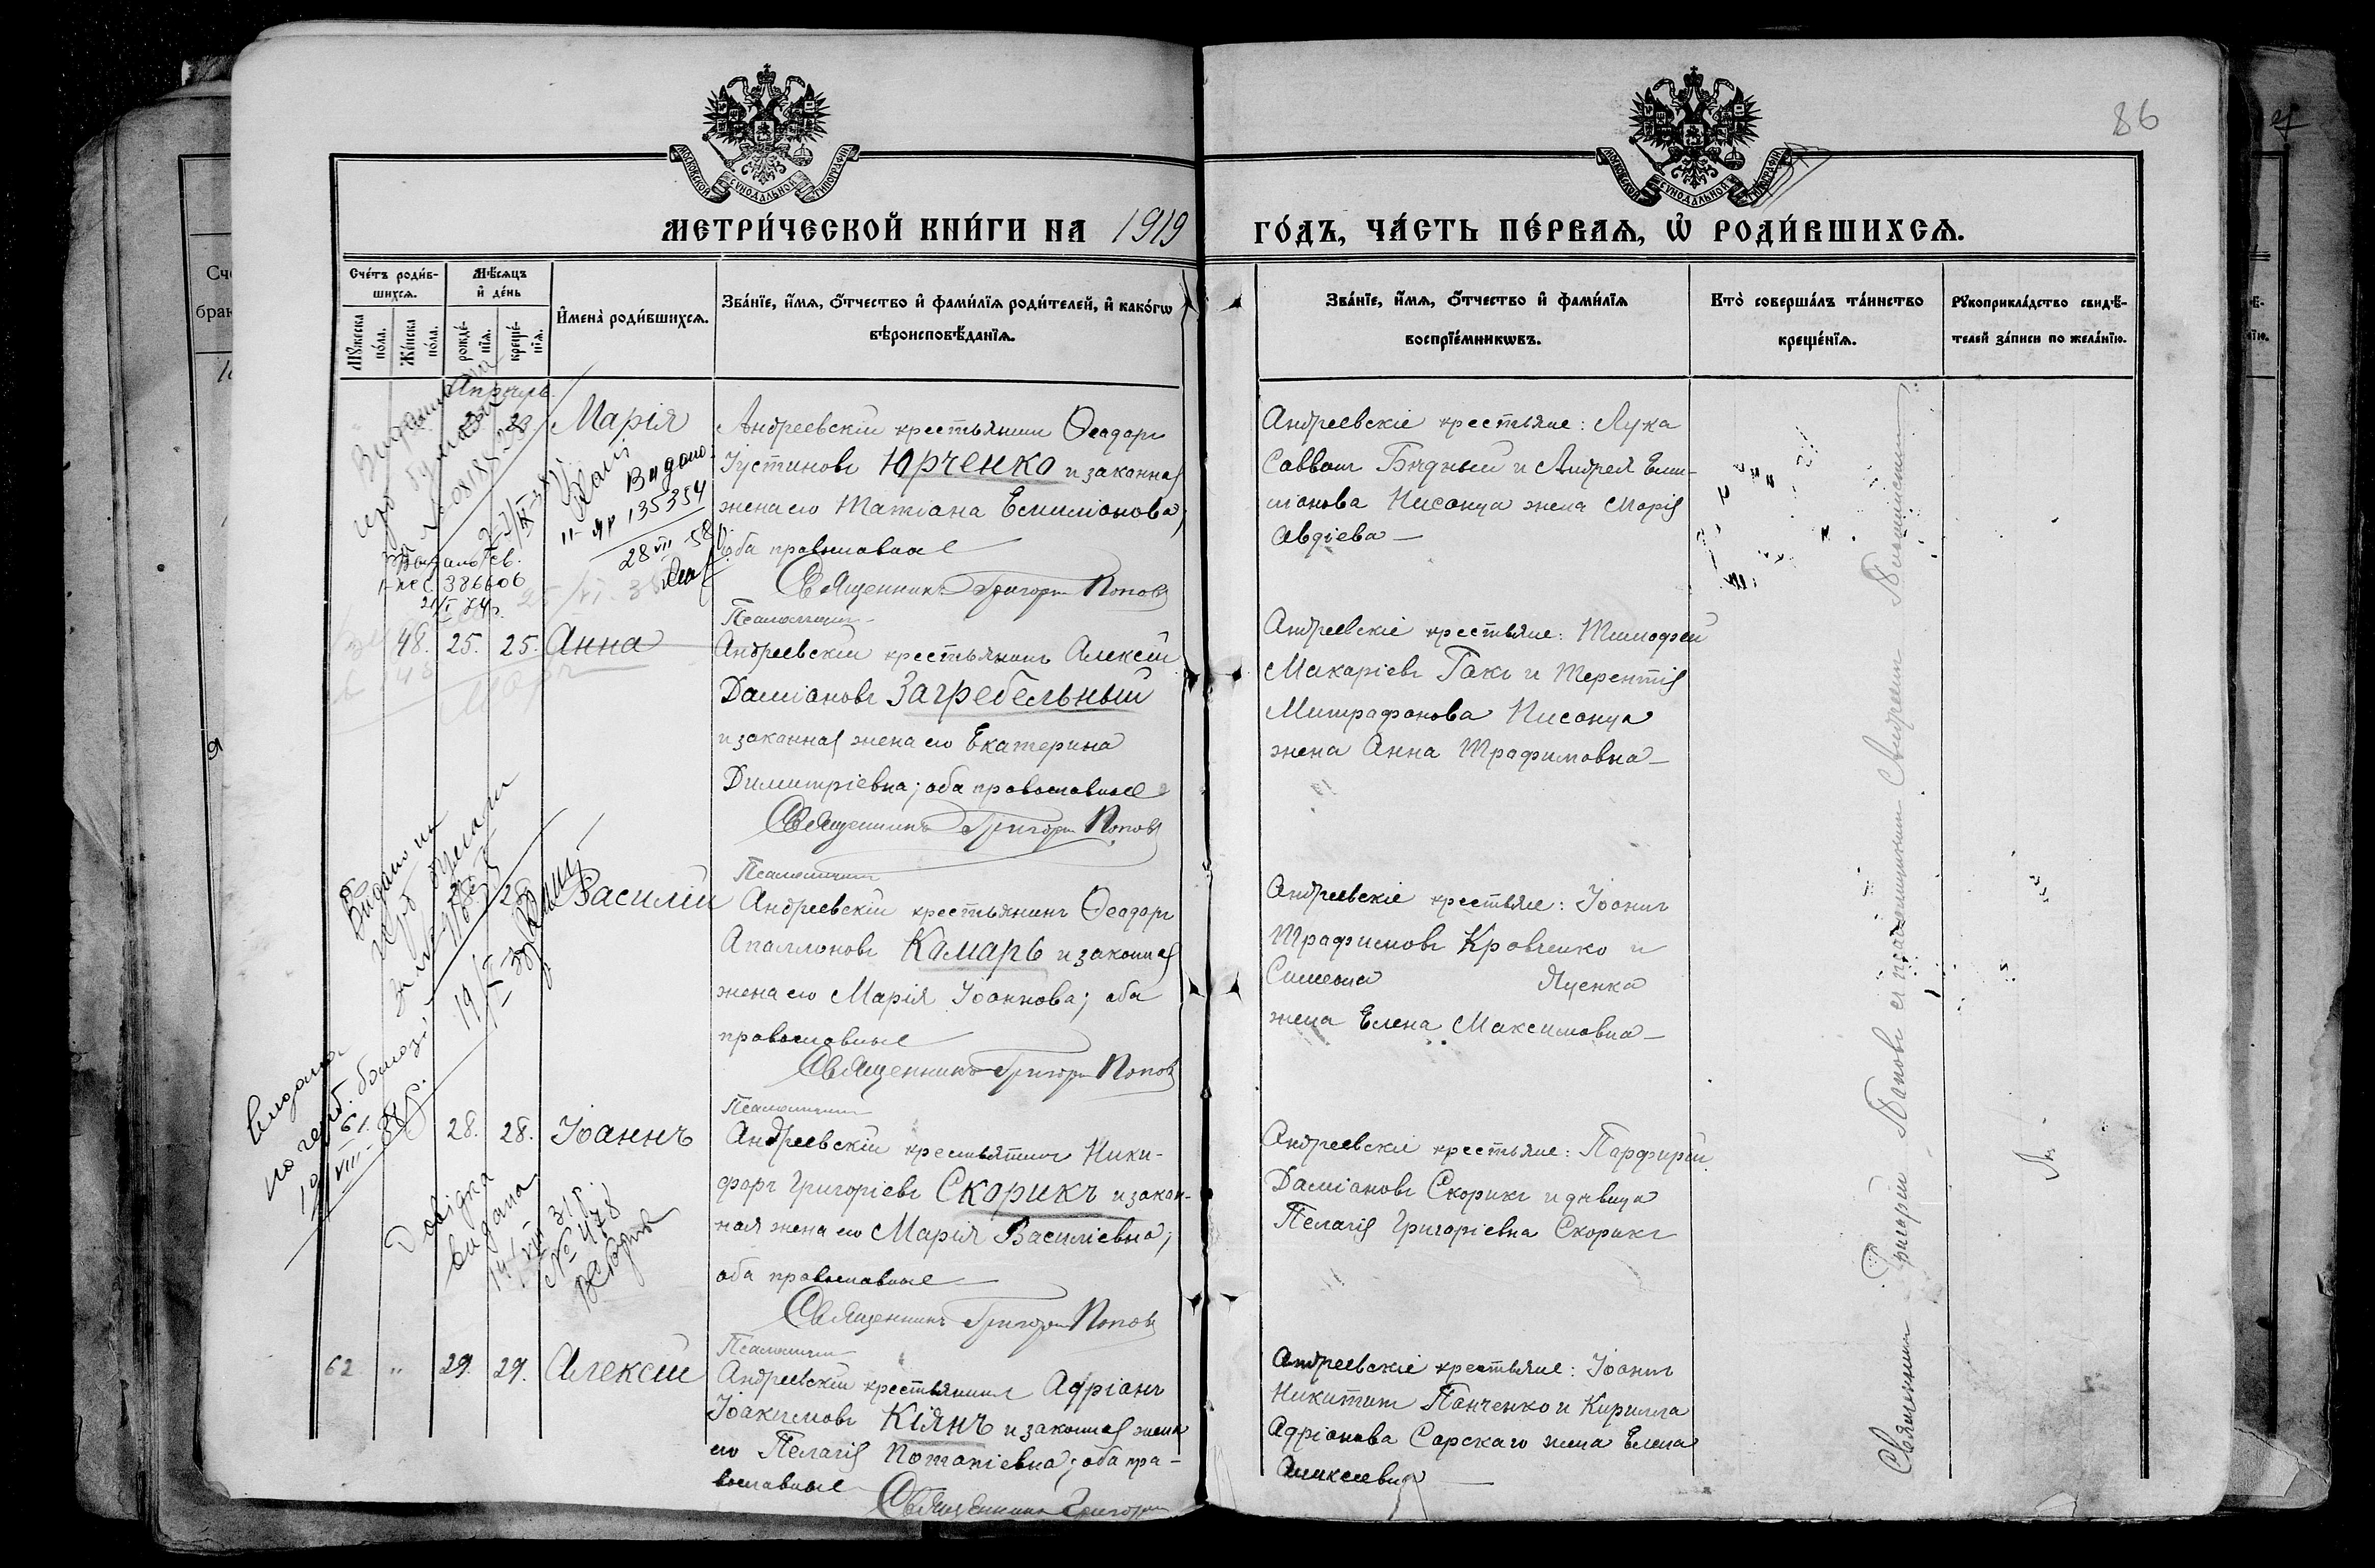 86
МОСКОВСКОЙ СѴНОДАЛЬНОЙ ТИПОГРАФІИ
МОСКОВСКОЙ СѴНОДАЛЬНОЙ ТИПОГРАФІИ
МЕТРИ́ЧЕСКОЙ КНИ́ГИ НА 1919 ГО́ДЪ, ЧА́СТЬ ПЕ́РВАѦ, Ѡ҆ РОДИ́ВШИХСѦ.
Сче́тъ роди́в-
шихсѧ.
Мꙋ́жеска по́ла.
Же́нска по́ла.
Мѣ́сѧцъ
и҆ де́нь
рожде́-
нїѧ.
креще́-
нїѧ.
И҆мена̀ роди́вшихсѧ.
Зва́нїе, и҆́мѧ, ѻ҆́тчество и҆ фами́лїѧ роди́телей, и҆ како́гѡ
вѣроисповѣ́данїѧ.
Зва́нїе, и҆́мѧ, ѻ҆́тчество и҆ фами́лїѧ
воспрїе́мникѡвъ.
Кто̀ соверша́лъ та́инство
креще́нїѧ.
Рꙋкоприкла́дство свидѣ́-
телей за́писи по жела́нїю.
Апрѣль.
23
Марія
Андреевскій крестьянинъ Ѳеодоръ
Іустиновъ Юрченко и законная
жена его Татіана Емиліонова;
оба православные
Священникъ Григорій Поповъ
Псаломщикъ
Андреевскіе крестьяне: Лука
Саввинъ Бѣдный и Андрея Еми-
ліонова Писонца жена Марія
Авдіева
Видано
11-ЯР 135354
28 VII 58 р.
Видано св.
386606
21/I 74 р.
48. 25. 25. Анна
Андреевскій крестьянинъ Алексій
Даміановъ Загребельный
и законная жена его Екатерина
Димитріевна; оба православные
Священникъ Григорій Поповъ
Псаломщикъ
Андреевскіе крестьяне: Тимофей
Макаріевъ Гакъ и Терентія
Митрофанова Писонца
жена Анна Трофимовна
Василій
Андреевскій крестьянинъ Ѳеодоръ
Аполлоновъ Комарь и законная
жена его Марія Іоаннова; оба
православные
Священникъ Григорій Поповъ
Псаломщикъ
Андреевскіе крестьяне: Іоаннъ
Трофимовъ Кровченко и
Симеона Яценка
жена Елена Максимовна
61. 28. 28. Іоаннъ
Андреевскій крестьянинъ Ники-
форъ Григоріевъ Скорикъ и закон-
ная жена его Марія Василіевна;
оба православные
Священникъ Григорій Поповъ
Псаломщикъ
Андреевскіе крестьяне: Парфирій
Даміановъ Скорикъ и дѣвица
Пелагія Григоріевна Скорикъ
Довідка
видана
14/VIII 31 р.
№ 478
62 " 29. 29. Алексій
Андреевскій крестьянинъ Адріанъ
Іоакимовъ Кіянъ и законная жена
его Пелагія Потапіевна; оба пра-
вославные
Священникъ Григорій
Андреевскіе крестьяне: Іоаннъ
Никитинъ Панченко и Кирилла
Адріанова Сарскаго жена Елена
Алексіевна
Священникъ Григорій Поповъ съ псаломщикомъ Андреемъ